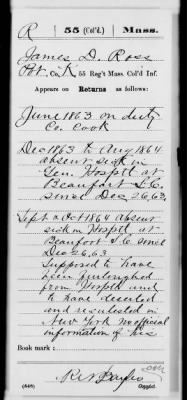 R 55 (Col'd.) Mass.
James D. Ross
Pvt., Co. K, 55 Reg't Mass. Col'd Inf.
Appears on Returns as follows:
June 1863 on duty
Co. Cook
Dec 1863 to Aug 1864
absent sick in
Gen. Hosptl at
Beaufort S.C.
since Dec 26, 63.
Sept & Oct 1864 absent
sick in Hosptl at
Beaufort S.C. since
Dec 26. 63
Supposed to have
been furloughed
from Hosptl and
to have deserted
and reenlisted in
New York no official
information of his
Book mark:
R W
(546) Copyist.